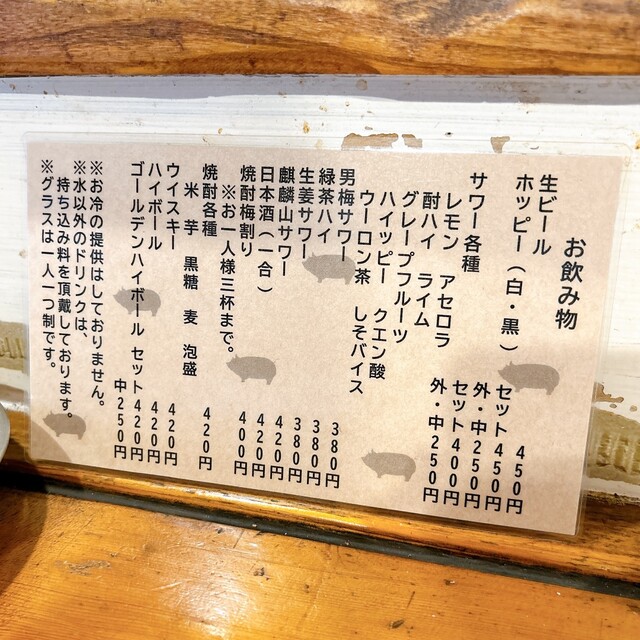 お飲み物
生ビール 450円
ホッピー(白・黒) セット450円
外・中250円
サワー各種 セット400円
レモン アセロラ 外・中250円
酎ハイ ライム
グレープフルーツ
ハイッピー クエン酸
ウーロン茶 しそバイス
男梅サワー 380円
緑茶ハイ 380円
生姜サワー 380円
麒麟山サワー 420円
日本酒(一合) 420円
焼酎梅割り 400円
※お一人様三杯まで。
焼酎各種 420円
米 芋 黒糖 麦 泡盛
ウイスキー 420円
ハイボール 420円
ゴールデンハイボール セット420円
中250円
※お冷の提供はしておりません。
※水以外のドリンクは、
持ち込み料を頂戴しております。
※グラスは一人一つ制です。